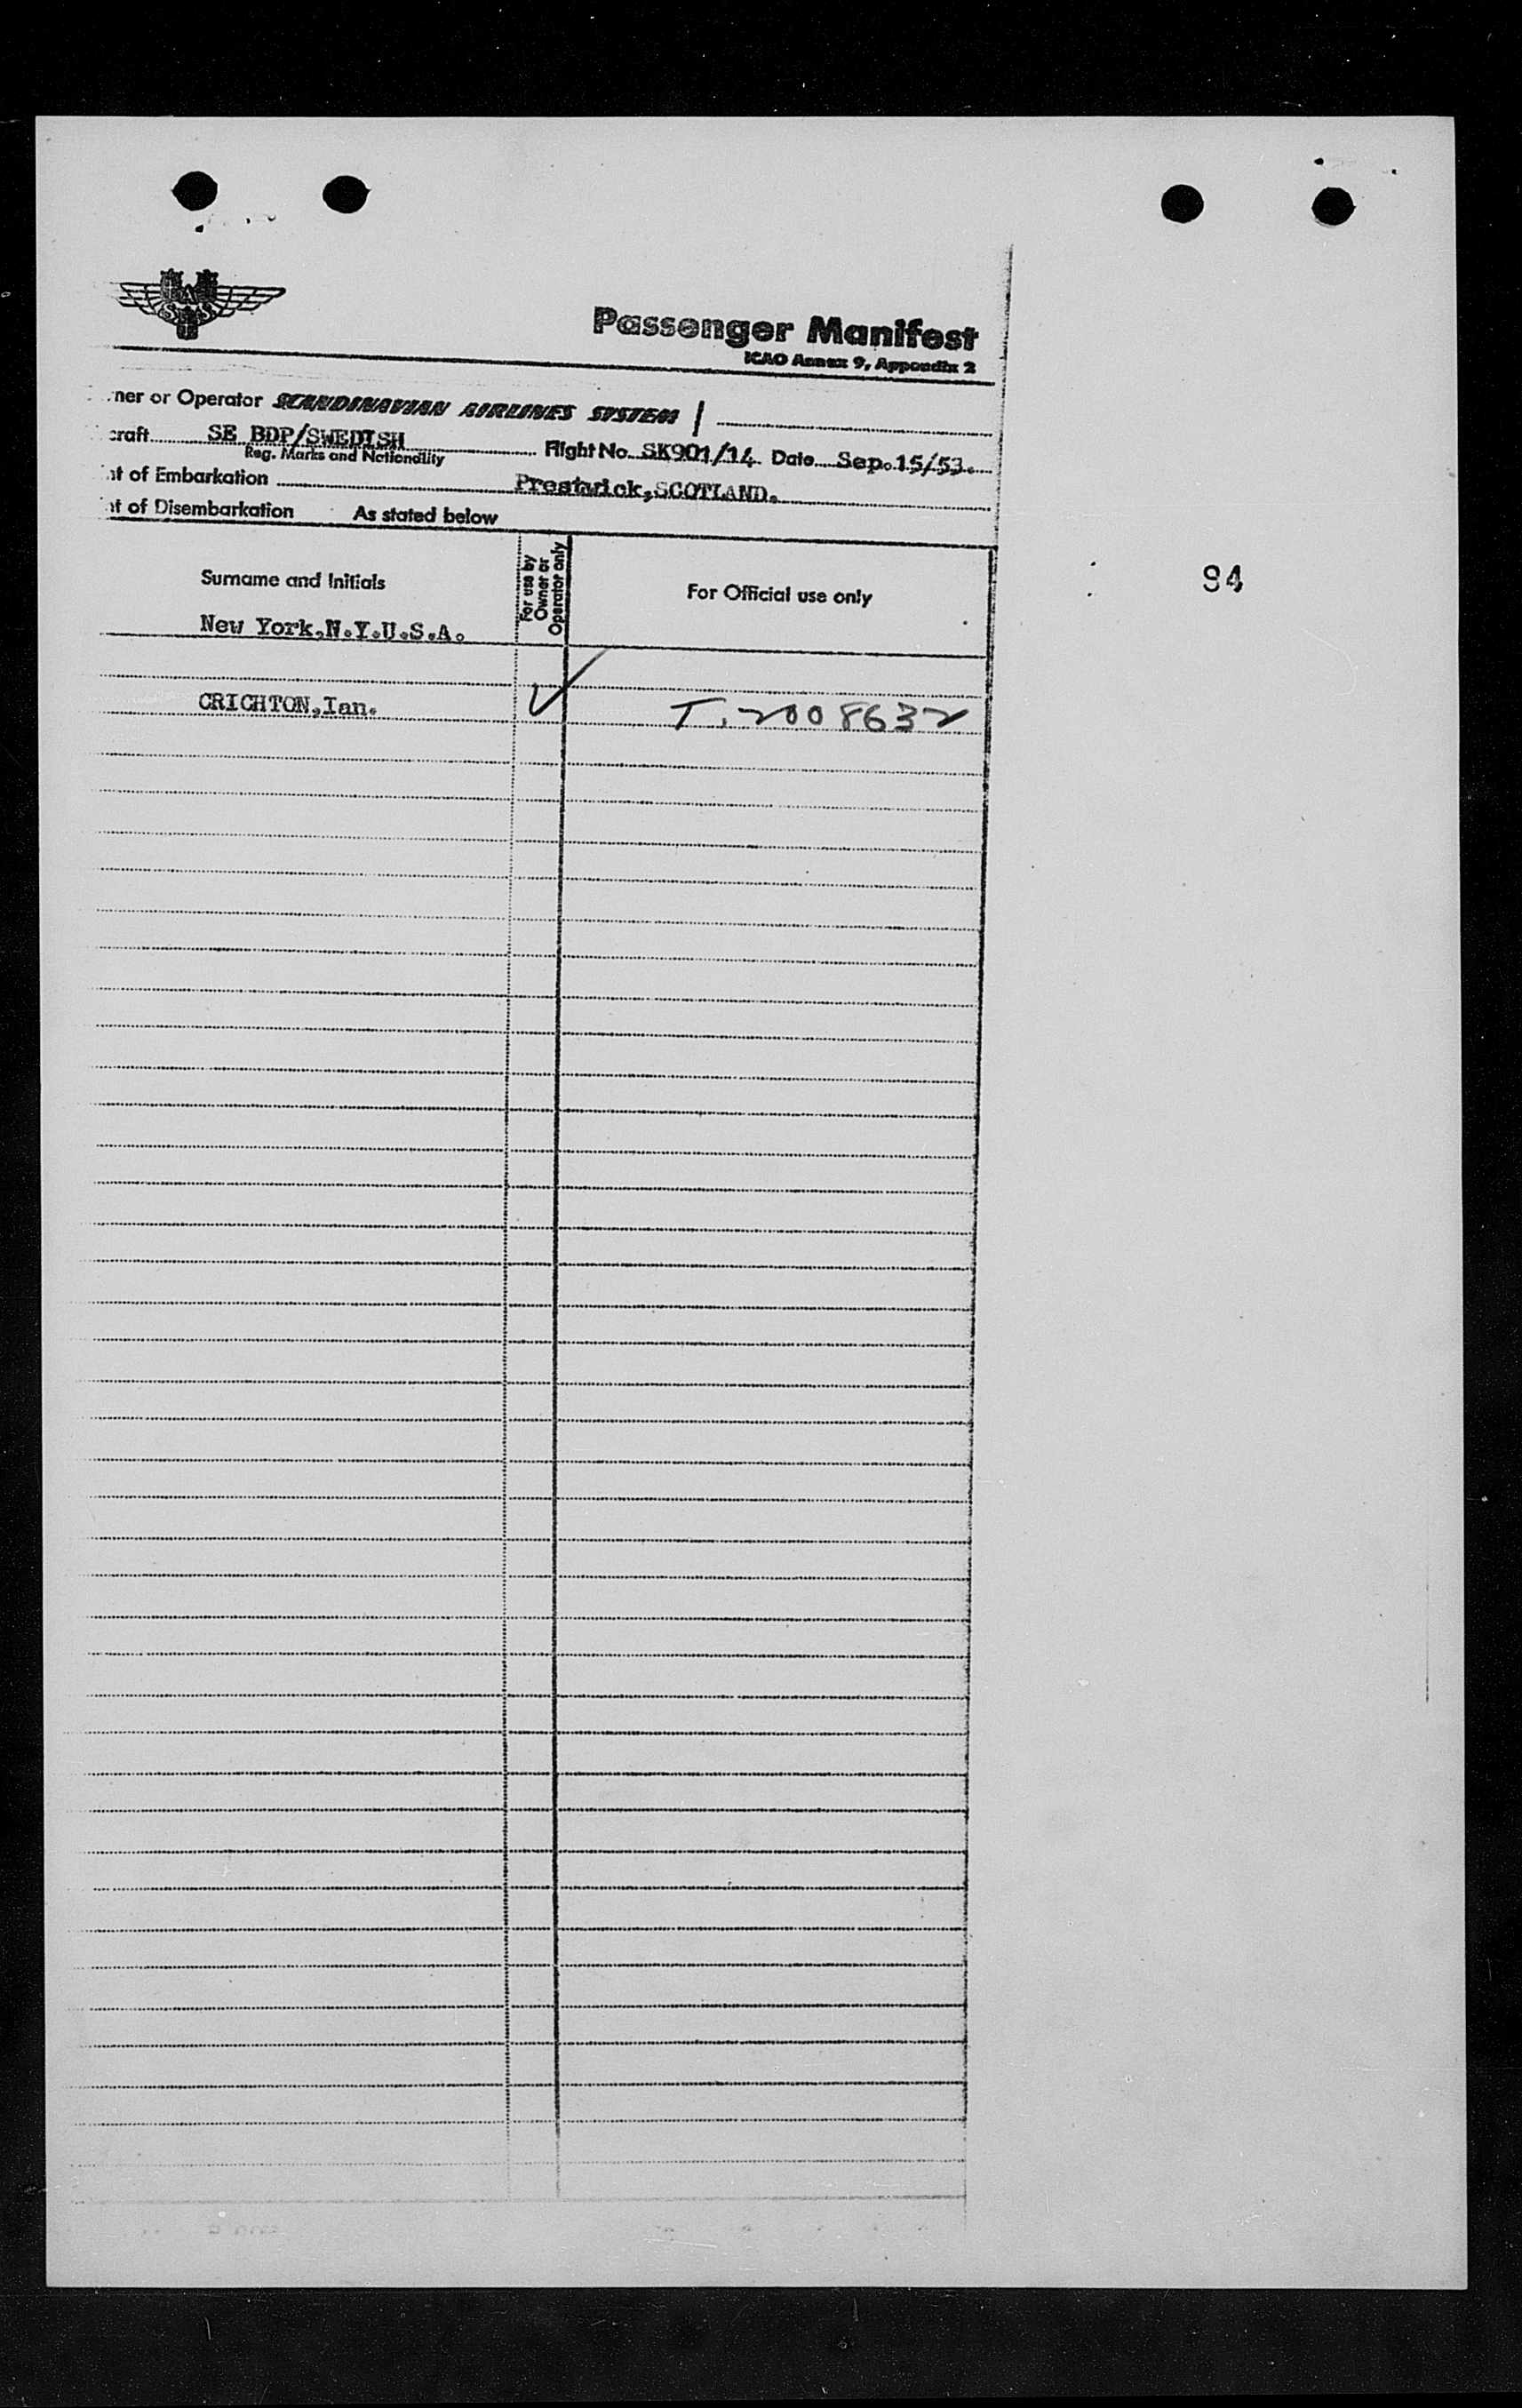 SAS
Passenger Manifest
ICAO Annex 9, Appendix 2
ner or Operator SCANDINAVIAN AIRLINES SYSTEM
craft SE BDP/SWEDISH Flight No. SK901/14 Date Sep.15/53.
Reg. Marks and Nationality
t of Embarkation Prestwick,SCOTLAND.
t of Disembarkation As stated below
Surname and Initials For use by Owner or Operator only For Official use only
94
New York.N.Y.U.S.A.
CRICHTON,Ian. T. 2008632